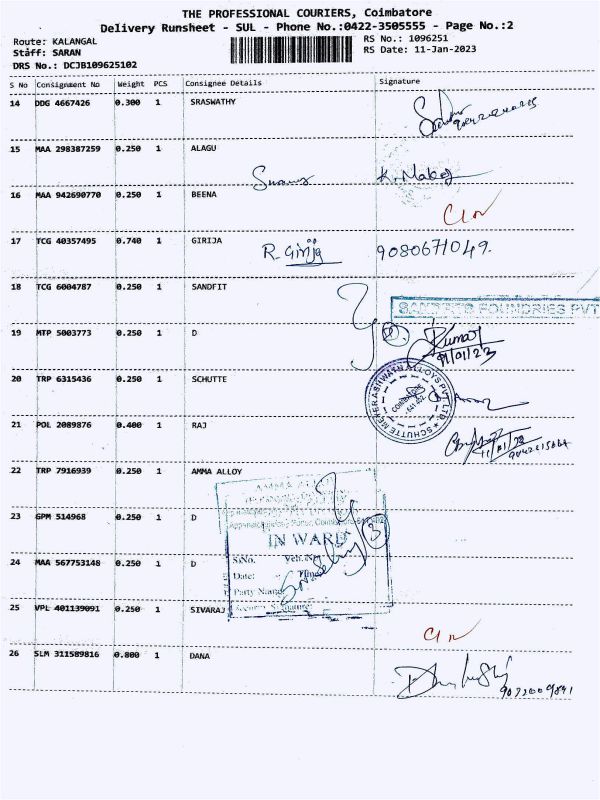 THE PROFESSIONAL COURIERS, Coimbatore
Delivery Runsheet - SUL - Phone No.:0422-3505555 - Page No.:2
Route: KALANGAL
Staff: SARAN
DRS No.: DCJB109625102
RS No.: 1096251
RS Date: 11-Jan-2023
S No Consignment No Weight PCS Consignee Details Signature
14 DDG 4667426 0.300 1 SRASWATHY
15 MAA 298387259 0.250 1 ALAGU
16 MAA 942690770 0.250 1 BEENA
17 TCG 40357495 0.740 1 GIRIJA R. Girija 9080671049.
18 TCG 6004787 0.250 1 SANDFIT
FOUNDRIES PVT
19 MTP 5003773 0.250 1 D
Kumar
11/01/23
20 TRP 6315436 0.250 1 SCHUTTE
SCHUTTE MEYER ASHWATH ALLOYS PVT. LTD.
COIMBATORE
21 POL 2089876 0.400 1 RAJ
22 TRP 7916939 0.250 1 AMMA ALLOY
23 GPM 514968 0.250 1 D
IN WARD
3
24 MAA 567753148 0.250 1 D
S.No.
Date:
Party Name
25 VPL 401139091 0.250 1 SIVARAJ
Signature:
26 SLM 311589816 0.800 1 DANA